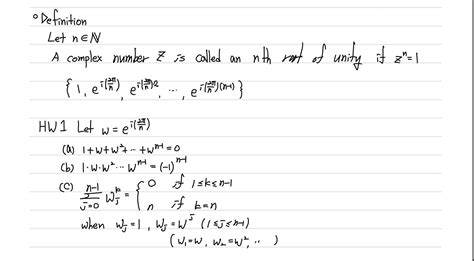 ° Definition
Let n∈ℕ
A complex number z is called an nth root of unity if zⁿ=1
{ 1, e^{i(2π/n)}, e^{i(2π/n)2}, ..., e^{i(2π/n)(n-1)} }
HW1 Let w = e^{i(2π/n)}
(a) 1+w+w²+...+w^{n-1}=0
(b) 1·w·w²...w^{n-1}=(-1)^{n-1}
(c) \sum_{j=0}^{n-1} w_j^k = { 0 if 1≤k≤n-1
n if k=n
when w_j=1, w_j=w^j (1≤j≤n-1)
(w₁=w, w₂=w², ..)